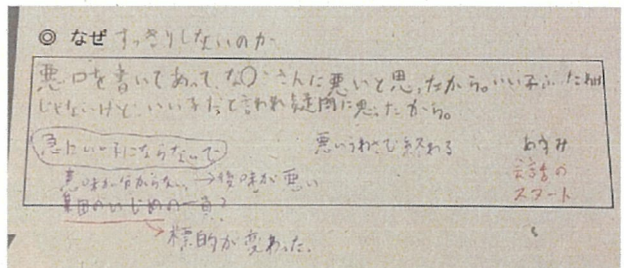 ◎ なぜ すっきりしないのか
悪口を書いてあって、な さんに悪いと思ったから。いい子
じゃないけど、いい子だと言われ疑問に思ったから。
急にいい子にならないで 悪いうわさで終わる あすみ
意味が分からない → 後味が悪い 会話の
集団のいじめの一員? スタート
標的が変わった。